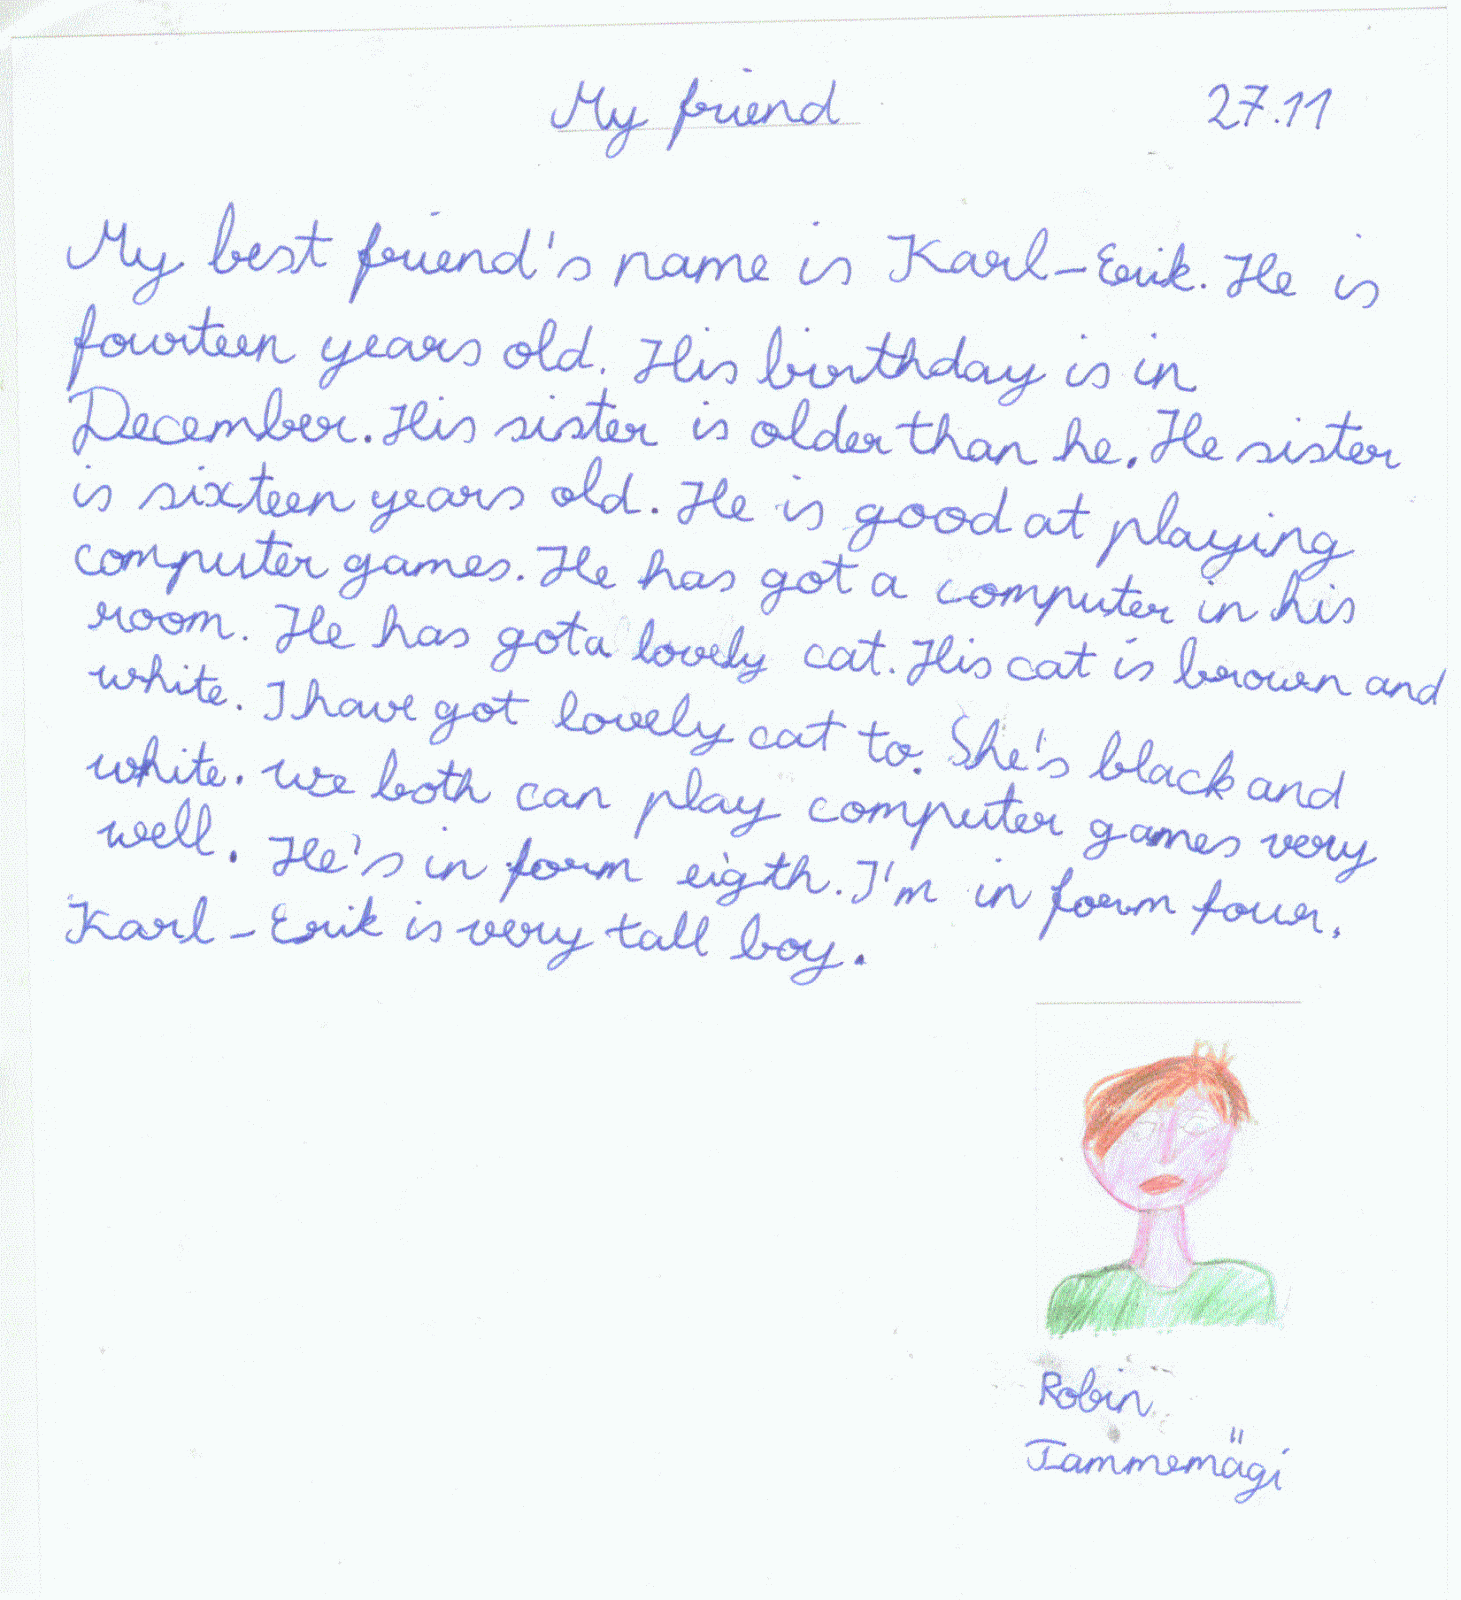 My friend
27.11
My best friend's name is Karl-Erik. He is
fourteen years old. His birthday is in
December. His sister is older than he. He sister
is sixteen years old. He is good at playing
computer games. He has got a computer in his
room. He has got a lovely cat. His cat is brown and
white. I have got lovely cat to. She's black and
white. we both can play computer games very
well. He's in form eigth. I'm in form four.
Karl-Erik is very tall boy.
Robin
Tammemägi